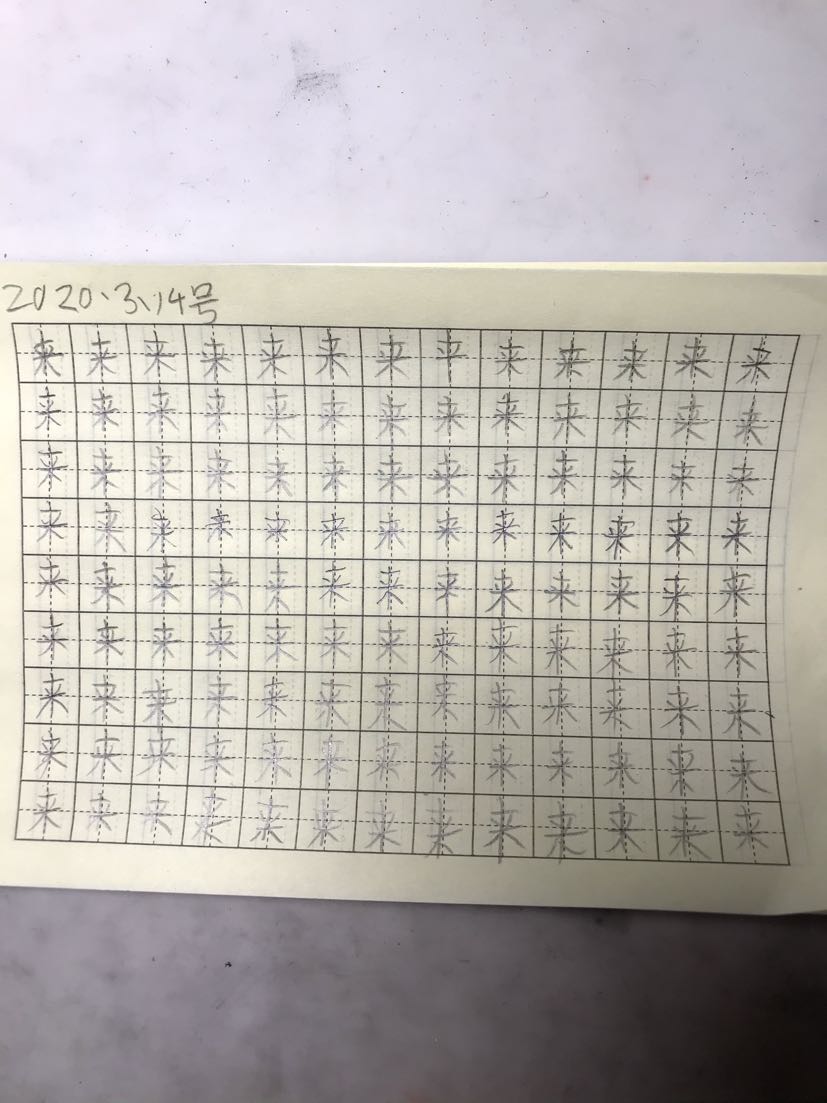 2020、3、14号
来来来来来来来平来来来来来
来来来来来来来来来来来来来
来来来来来来来来来来来来来
来来来来来来来来来来来来来
来来来来来来来来来来来来来
来来来来来来来来来来来来来
来来来来来来来来来来来来来
来来来来来来来来来来来来来
来来来来来来来来来来来来来